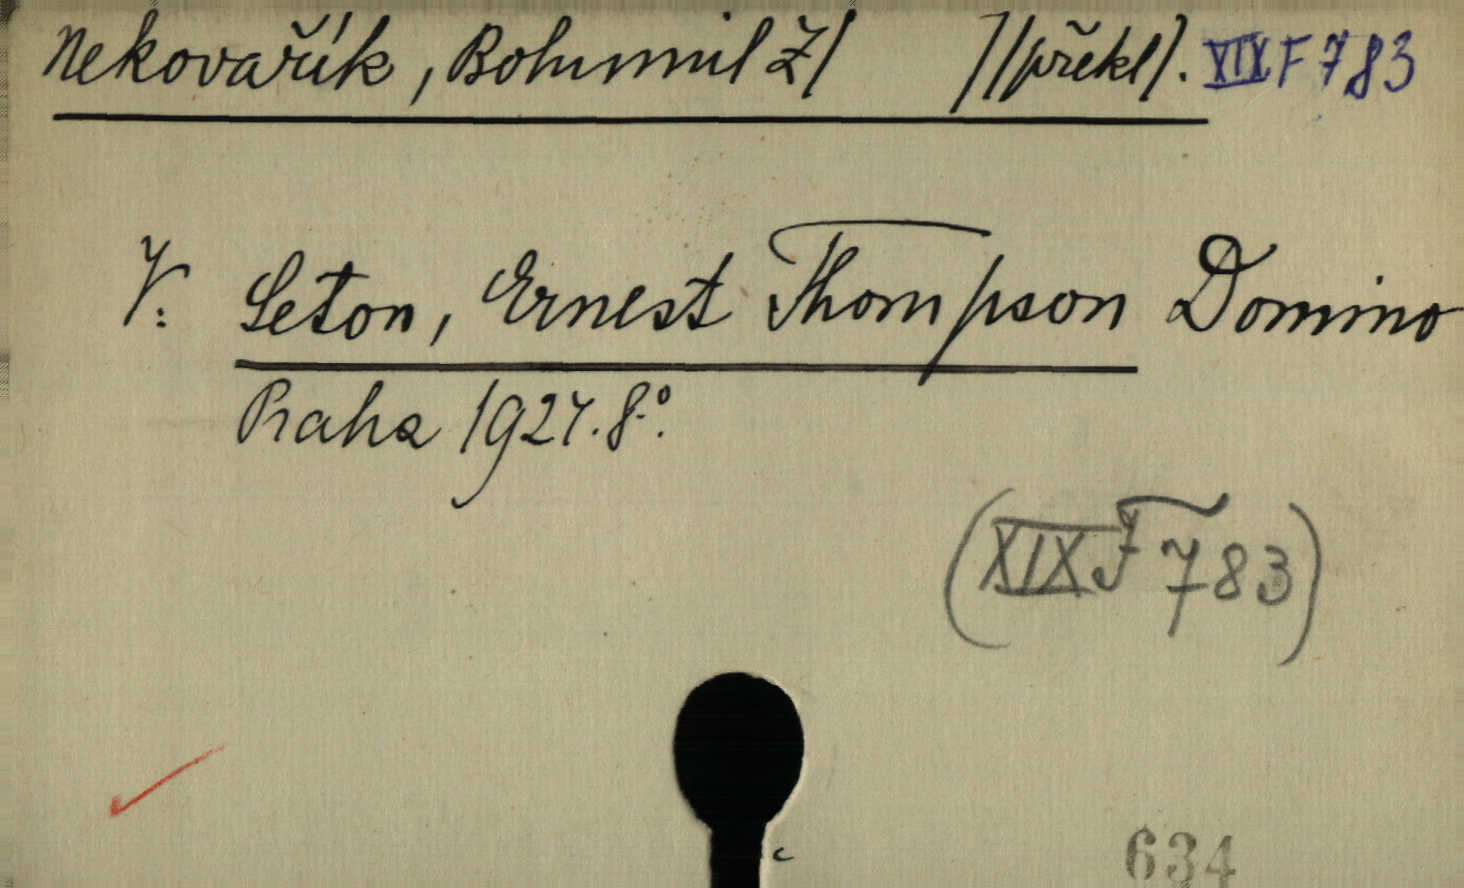 Nekovařík, Bohumil Z/ //překl/. XIX F 783
V: Seton, Ernest Thompson Domino
Praha 1927. 8.°
(XIX F 783)
634